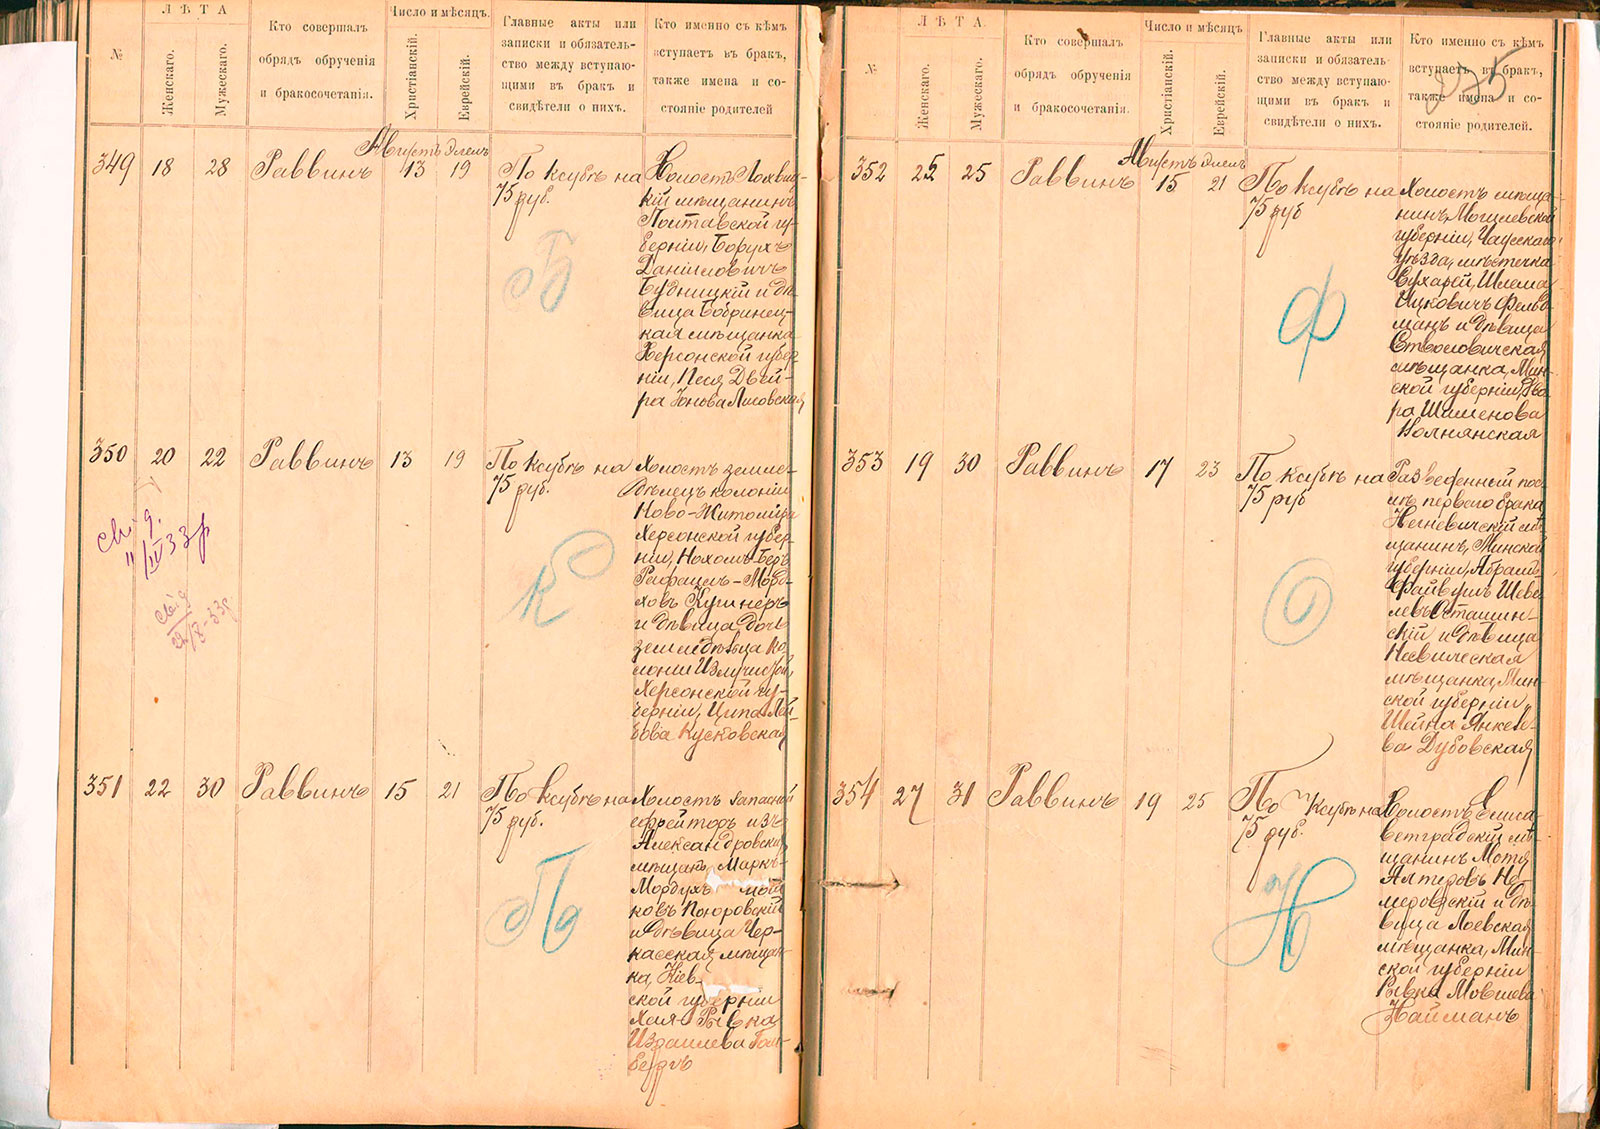 Л Ѣ Т А
№
Женскаго.
Мужескаго.
Кто совершалъ
обрядъ обрученія
и бракосочетанія.
Число и мѣсяцъ.
Христіанскій.
Еврейскій.
Главные акты или
записки и обязатель-
ство между вступаю-
щими въ бракъ и
свидѣтели о нихъ.
Кто именно съ кѣмъ
вступаетъ въ бракъ,
также имена и со-
стояніе родителей
Августъ Элелъ
349 18 28 Раввинъ 13 19
По ксубѣ на
75 руб.
Б
Холостъ Лохвиц-
кій мѣщанинъ
Полтавской гу-
берніи, Борухъ
Даніиловичъ
Будницкій и дѣ-
вица Бобринец-
кая мѣщанка
Херсонской губер
ніи, Песя Двей-
ра Іонова Лисовская
350 20 22 Раввинъ 13 19
По ксубѣ на
75 руб.
К
Холостъ земле-
дѣлецъ колоніи
Ново-Житомира
Херсонской губер-
ніи, Нахомъ-Беръ
Рафаилъ-Мордо-
ховъ Кушнеръ
и дѣвица, дочь
земледѣльца ко
лоніи Излучистой,
Херсонской гу-
берніи, Ципа Лей-
бова Кусковская
св. д.
11/IV 33 р
св. д
22/8-33 г
351 22 30 Раввинъ 15 21
По ксубѣ на
75 руб.
П
Холостъ запасной
ефрейторъ изъ
Александровских
мѣщанъ, Маркъ-
Мордухъ
ковъ
и дѣвица Чер-
касская мѣщан-
ка, Кіев-
ской губерніи
Хая-Рывка
Израилева Гол-
бергъ
Л Ѣ Т А
№
Женскаго.
Мужескаго.
Кто совершалъ
обрядъ обрученія
и бракосочетанія.
Число и мѣсяцъ
Христіанскій.
Еврейскій.
Главные акты или
записки и обязатель-
ство между вступаю-
щими въ бракъ и
свидѣтели о нихъ.
Кто именно съ кѣмъ
вступаетъ въ бракъ,
также имена и со-
стояніе родителей.
Августъ Элелъ
352 25 25 Раввинъ 15 21
По ксубѣ на
75 руб
Ф
Холостъ мѣща-
нинъ, Могилевской
губерніи, Чаусскаго
уѣзда, мѣстечка
Сухарей, Шлема
Ицковичъ Фельд-
манъ и дѣвица
Стволовичская
мѣщанка, Мин-
ской губерніи, Сва-
ра
353 19 30 Раввинъ 17 23
По ксубѣ на
75 руб
О
Разведенный пос-
лѣ перваго брака
Негневичскій мѣ-
щанинъ, Минской
губерніи, Абрамъ-
Файвушъ Шеве-
левъ Осташин-
скій и дѣвица
Несвижская
мѣщанка, Мин-
ской губерніи,
Шейна Янкеле-
ва Дубовская
354 27 31 Раввинъ 19 25
По ксубѣ на
75 руб.
Н
Холостъ Елиса-
ветградскій мѣ-
щанинъ Мотя
Алтеровъ Не-
меровскій и дѣ-
вица Лоевская
мѣщанка, Мин-
ской губерніи
Рывка Мовшева
Найманъ